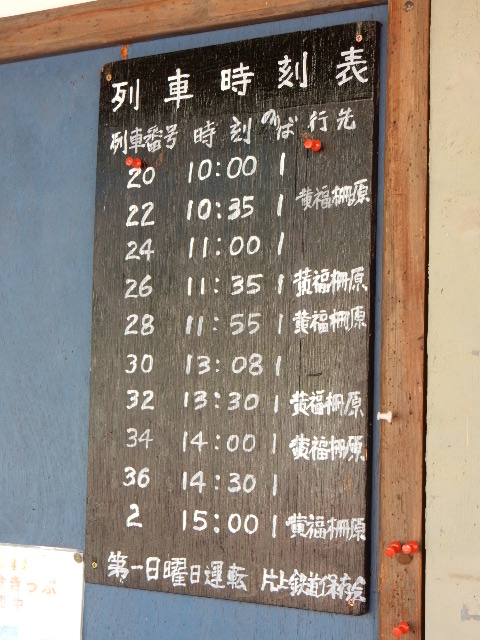 列車時刻表
列車番号 時刻 のば 行先
20 10:00 1
22 10:35 1 黄福柵原
24 11:00 1
26 11:35 1 黄福柵原
28 11:55 1 黄福柵原
30 13:08 1
32 13:30 1 黄福柵原
34 14:00 1 黄福柵原
36 14:30 1
2 15:00 1 黄福柵原
第一日曜日運転 片上鉄道保存会
きっぷ